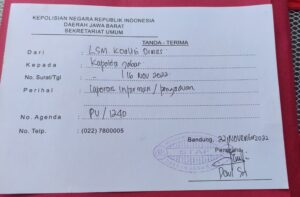 KEPOLISIAN NEGARA REPUBLIK INDONESIA
DAERAH JAWA BARAT
SEKRETARIAT UMUM
TANDA - TERIMA
Dari : LSM Koalisi
Kepada : Kapolda Jabar
No. Surat/Tgl : .. / 16 NOV 2022
Perihal : Laporan Informasi / pengaduan
No. Agenda : PU / 1240
No. Telp. : (022) 7800005
Bandung, 22 NOVEMBER 2022
Penerima